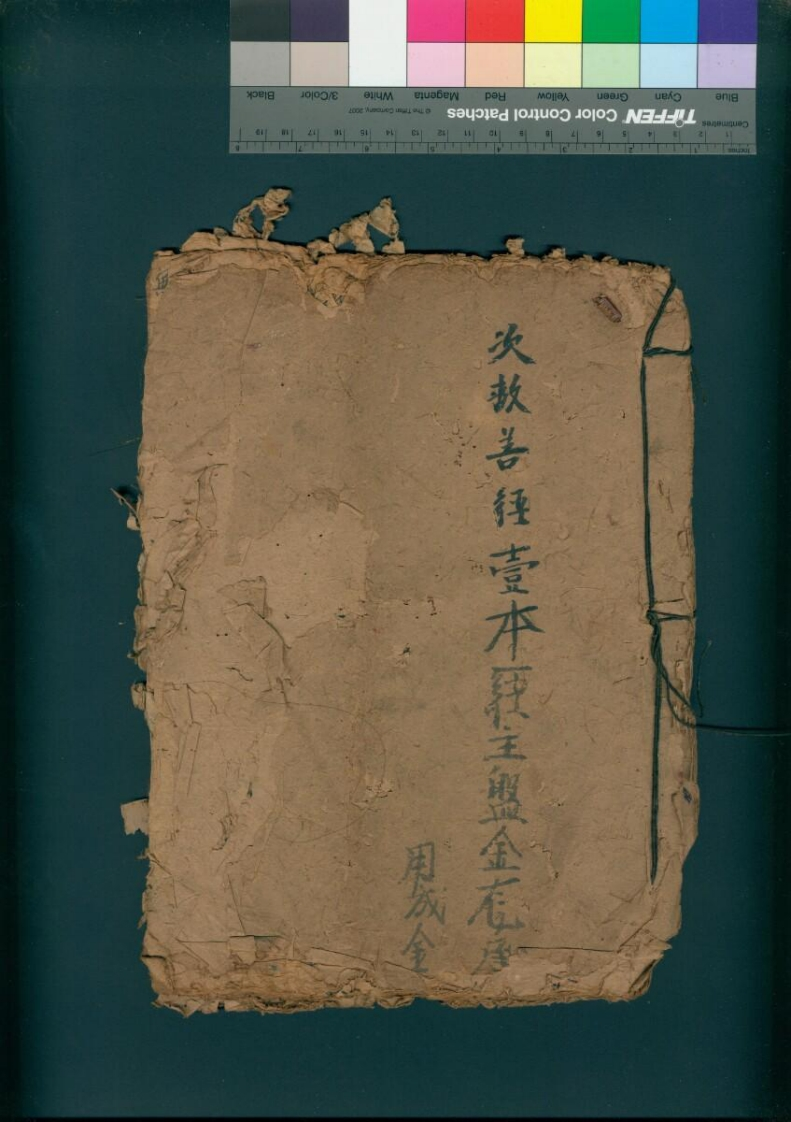 次救善經壹本 主盤金
用成金
Blue Cyan Green Yellow Red Magenta White 3/Color Black
TIFFEN Color Control Patches © The Tiffen Company, 2007
Centimetres 1 2 3 4 5 6 7 8 9 10 11 12 13 14 15 16 17 18 19
Inches 1 2 3 4 5 6 7 8